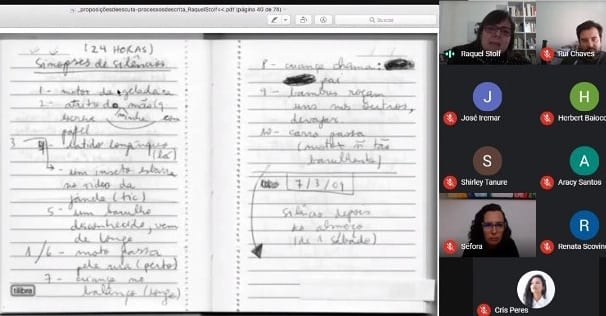 _proposiçõesdeescuta-processosdescrita_RaquelStolf<<.pdf (página 40 de 76)
Buscar
(24 HORAS)
Sinopses de silêncios
1 - motor da geladeira
2 - atrito da mão q
escreve minha com
papel
3 4 - latido longínquo
(lá)
um inseto esbarra
no vidro da
janela (tic)
5 - um barulho
desconhecido, vem
de longe
1/6 - moto passa
pela rua (perto)
7 - criança no
balanço (longe)
tilibra
8 - criança chama:
pai
9 - bambus roçam
uns nos outros,
devagar
10 - carro passa
(motor ñ tão
barulhento)
7/3/09
silêncio depois
do almoço
(de 1 sábado)
Raquel Stolf
Rui Chaves
J
José Iremar
H
Herbert Baioco
S
Shirley Tanure
A
Aracy Santos
Sefora
R
Renata Scovin
Cris Peres